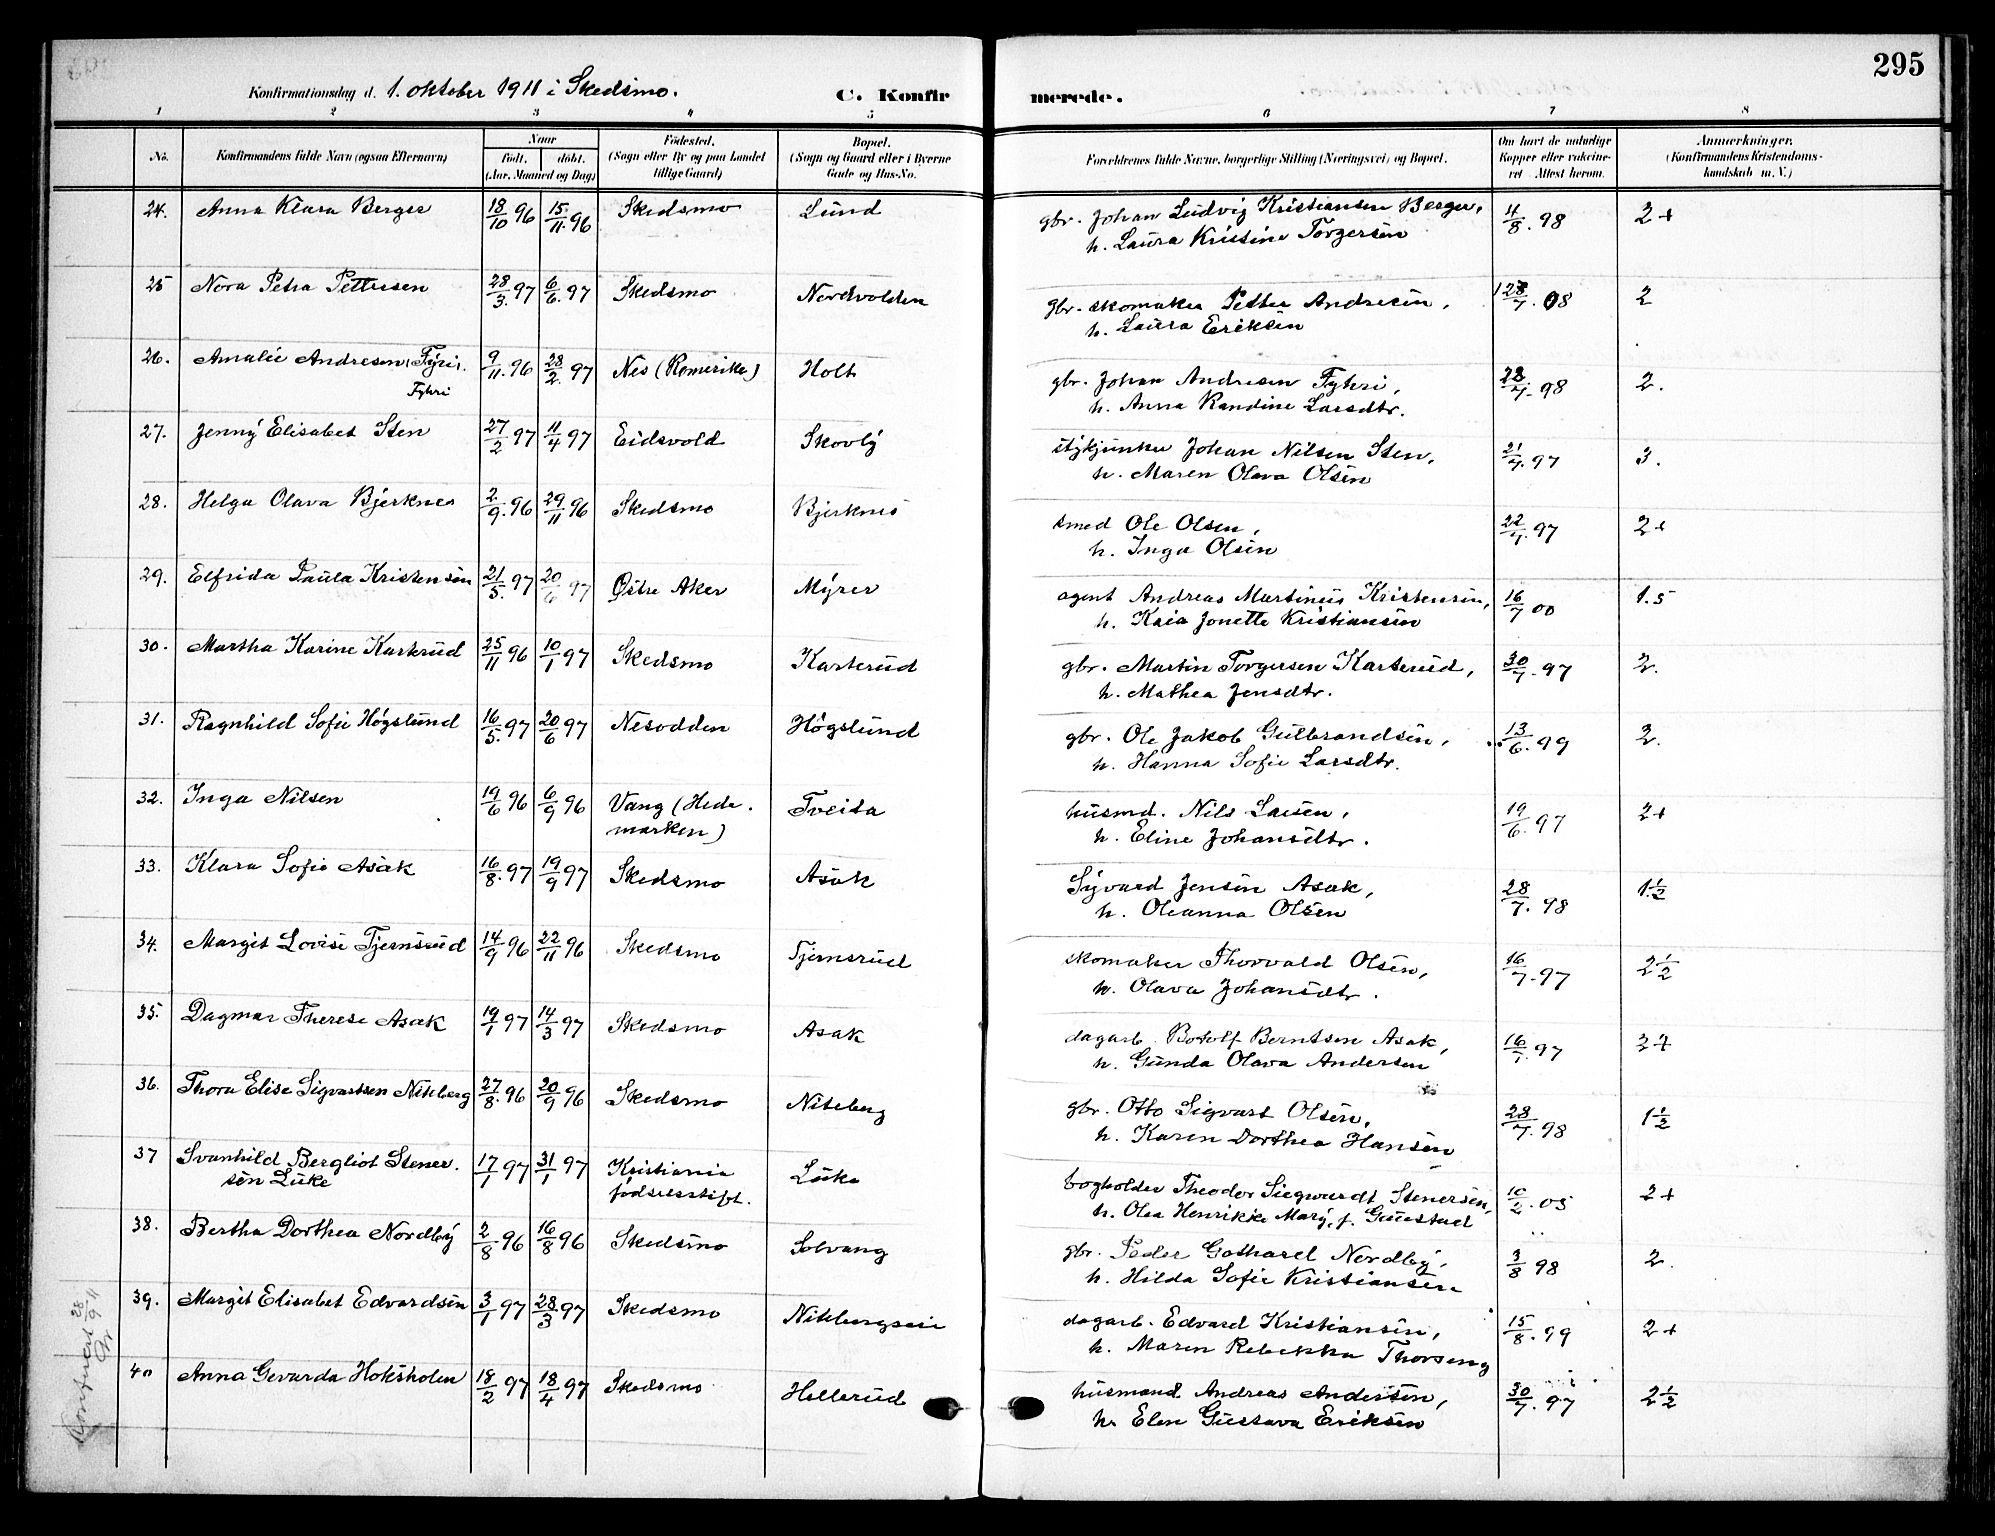 295
Konfirmationsdag d. 1. oktober 1911 i Skedsmo.
C. Konfirmerede.
1 2 3 4 5 6 7 8
No. Konfirmandens fulde Navn (ogsaa Efternavn) Naar født. døbt. (Aar, Maaned og Dag) Fødested. (Sogn eller By og paa Landet tillige Gaard) Bopæl. (Sogn og Gaard eller i Byerne Gade og Hus-No. Forældrenes fulde Navne, borgerlige Stilling (Næringsvei) og Bopæl. Om havt de naturlige Kopper eller vakcineret. Attest herom. Anmerkninger. (Konfirmandens Kristendomskundskab m. V.)
24. Anna Klara Berger 18/10 96 15/11. 96 Skedsmo Lund gbr. Johan Ludvig Kristiansen Berger, 4/8. 98 2+
h. Laura Kristine Torgersen
25 Nora Petra Pettersen 28/3. 97 6/6. 97 Skedsmo Nordvolden gbr. skomaker Petter Andresen, 08 2
h. Laura Eriksen
26. Amalie Andresen Fyri. 9/11. 96 28/2. 97 Nes (Romerike) Holt gbr. Johan Andresen Fyhri, 28/7. 98 2.
Fyhri h. Anna Randine Larsdtr.
27. Jenny Elisabet Sten 27/2 97 11/4 97 Eidsvold Skovly stykjunker Johan Nilsen Sten, 21/7. 97 3.
h. Maren Olava Olsen
28. Helga Olava Bjerknes 2/9. 96 29/11 96 Skedsmo Bjerknes smed Ole Olsen, 22/7. 97 2+
h. Inga Olsen
29. Elfrida Paula Kristensen 21/5. 97 20/6 97 Østre Aker Myrer agent Andreas Martinius Kristensen, 16/7 00 1.5
h. Kaia Jonette Kristiansen
30. Martha Karine Karterud 25/11 96 10/1 97 Skedsmo Karterud gbr. Martin Torgersen Karterud, 30/7. 97 2.
h. Mathea Jensdtr.
31. Ragnhild Sofie Høgslund 16/5. 97 20/6 97 Nesodden Høgslund gbr. Ole Jakob Gulbrandsen, 13/6. 99 2.
h. Hanna Sofie Larsdtr.
32. Inga Nilsen 19/6 96 6/9 96 Vang (Hede- Tveita husmd. Nils Larsen, 19/6. 97 2+
marken) h. Eline Johansdtr.
33. Klara Sofie Asak 16/8. 97 19/9 97 Skedsmo Asak Syvard Jensen Asak, 28/7. 98 1½
h. Oleanna Olsen
34. Margit Lovise Tjernsrud 14/9 96 22/11 96 Skedsmo Tjernsrud skomaker Thorvald Olsen, 16/7. 97 2½
h. Olava Johansdtr.
35. Dagmar Therese Asak 19/1 97 14/3 97 Skedsmo Asak dagarb. Botolf Berntsen Asak, 97 2+
h. Gunda Olava Andersen
36. Thora Elise Sigvartsen Niteberg 27/8. 96 20/9 96 Skedsmo Niteberg gbr. Otto Sigvart Olsen, 28/7. 98 1½
h. Karen Dorthea Hansen
37 Svanhild Bergliot Stener- 17/1 97 31/1 97 Kristiania Luke bogholder Theodor Siegwardt Stenersen, 10/2. 05 2+
sen Luke fødselsstift. h. Olea Henrikke Mary, f. Gaustad
38. Bertha Dorthea Nordby 2/8 96 16/8 96 Skedsmo Solvang gbr. Peder Gothard Nordby, 3/8 98 2.
h. Hilda Sofie Kristiansen
39. Margit Elisabet Edvardsen 3/1 97 28/3 97 Skedsmo Nitebergseie dagarb. Edvard Kristiansen, 15/8. 99 2+
h. Maren Rebekka Thorseng
40 Anna Gevarda Hoksholen 18/2 97 18/4 97 Skedsmo Hellerud husmand Andreas Andersen, 30/7. 97 2½
h. Elen Gustava Eriksen